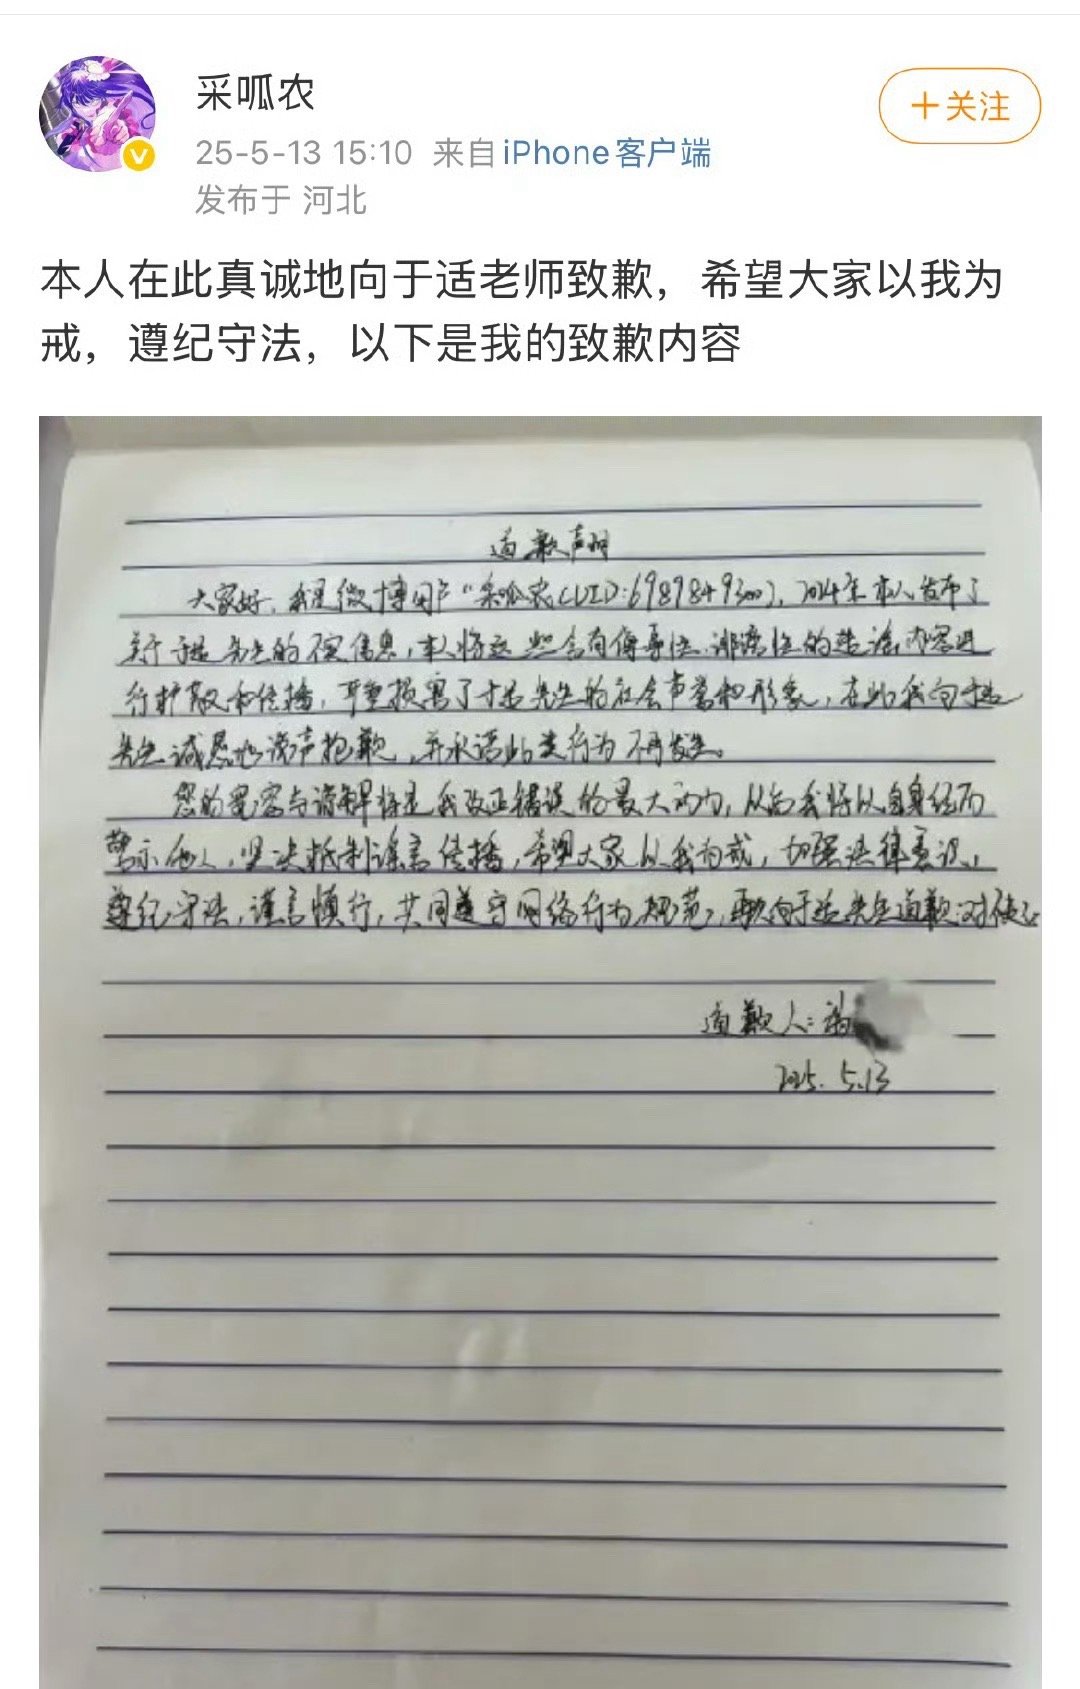 采呱农
+关注
25-5-13 15:10 来自 iPhone客户端
发布于 河北
本人在此真诚地向于适老师致歉，希望大家以我为
戒，遵纪守法，以下是我的致歉内容
道歉声明
大家好，我是微博用户“采呱农(UID:6989849300)，2024年本人发布了
关于于适先生的不实信息，本人将这些含有侮辱性、诽谤性的造谣内容进
行扩散和传播，严重损害了于适先生的社会声誉和形象，在此我向于适
先生诚恳地说声抱歉，并承诺此类行为不再发生。
您的宽容与谅解将是我改正错误的最大动力，从后我将以自身经历
警示他人，坚决抵制谣言传播，希望大家以我为戒，加强法律意识，
遵纪守法，谨言慎行，共同遵守网络行为规范，再次向于适先生道歉:对不起
道歉人：
2025.5.13